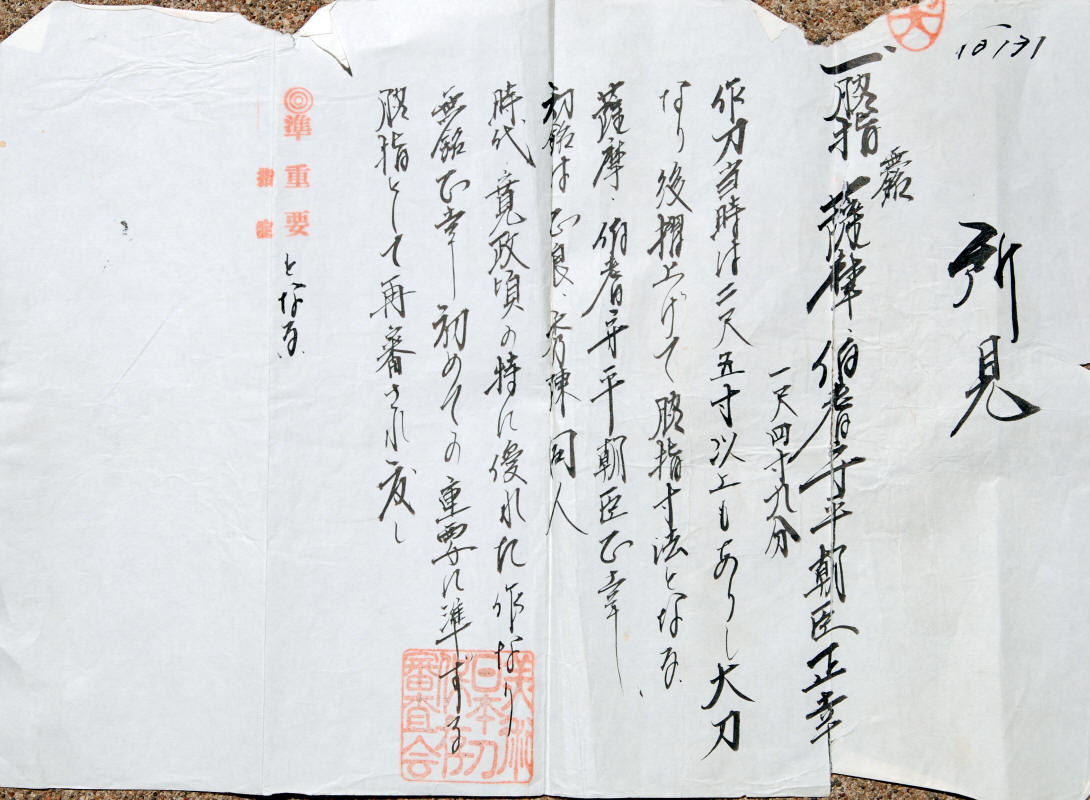 10131
所見
無銘
一、脇指 薩摩 伯耆守平朝臣正幸
一尺四寸九分
作刀当時は二尺五寸以上もありし大刀
なり後摺上げて脇指寸法となる
薩摩 伯耆守平朝臣正幸
初銘は正良、 同人
時代 寛政頃の特に優れた作なり
無銘正幸 初めての重要に準ずる
脇指として再審され度し
準重要
となる
美術日本刀保存審査会